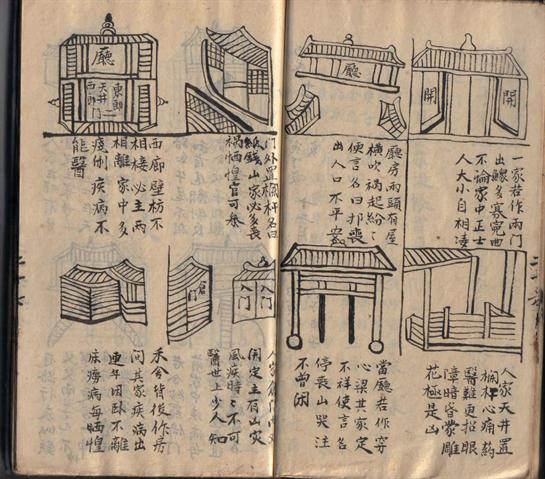 開
開
一家若作兩門
出鰥多寡冤曲
不論家中正士
人大小自相凌
廳
廳房兩頭有屋
橫吹禍起紛〻
便言名曰邪喪
出人口不平安
人家天井置
欄杆心痛葯
醫難更招眼
障暗昏蒙雕
花極是凶
當廳若作穿
心梁其家定
不祥便言名
停喪山哭注
不曾閑
門外置欄杆名曰
紙錢山家必多喪
禍恓惶官可恭
廳
東廊
天井
西廊
門
西廊壁枋不
相接必主兩
相離家中多
痰倒疾病不
能醫
入門
入門
倉門
人家倉作
開定主有山灾
風疾時〻不可
醫世上少人知
禾倉背後作房
間其家疾病出
連年困卧不離
床癆病每恓惶